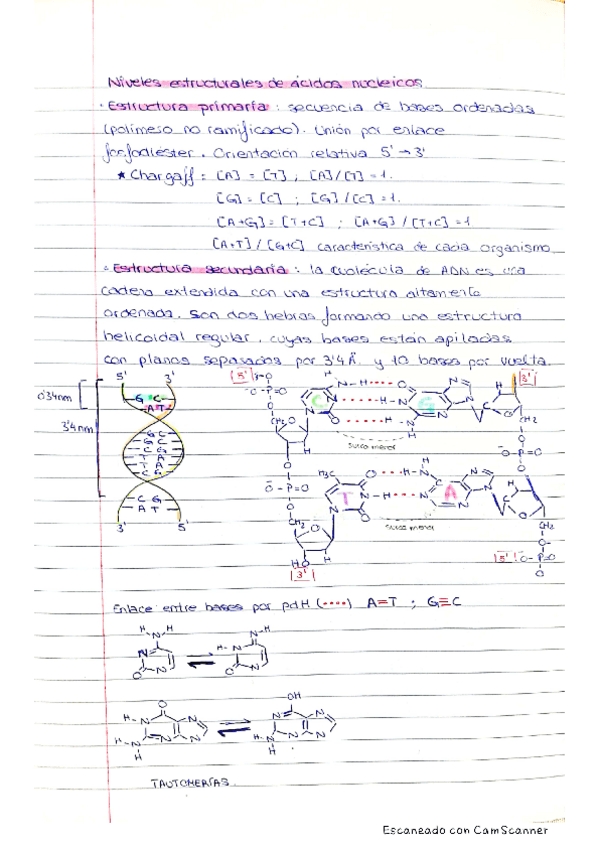 Niveles estructurales de ácidos nucleicos
· Estructura primaria : secuencia de bases ordenadas
(polímeso no ramificado). Unión por enlace
fosfodiester. Orientacion relativa 5' → 3'
★ Chargaff : [A] = [T] ; [A]/[T] = 1.
[G] = [C] ; [G]/[C] = 1.
[A+G] = [T+C] ; [A+G] / [T+C] = 1
[A+T] / [G+C] característica de cada organismo
· Estructura secundaria : la molécula de ADN es una
cadena extendida con una estructura altamente
ordenada. Son dos hebras formando una estructura
helicoidal regular, cuyas bases están apiladas
con planos separados por 3'4 Å. y 10 bases por vuelta.
5' 3'
0'34nm
3'4nm
G C
A T
G C
C G
C G
T A
T A
C G
C G
A T
3' 5'
5'
3'
C
G
Surco menor
T
A
Surco menor
3'
5'
Enlace entre bases por pdH (····) A=T ; G≡C
TAUTOMERÍAS.
Escaneado con CamScanner